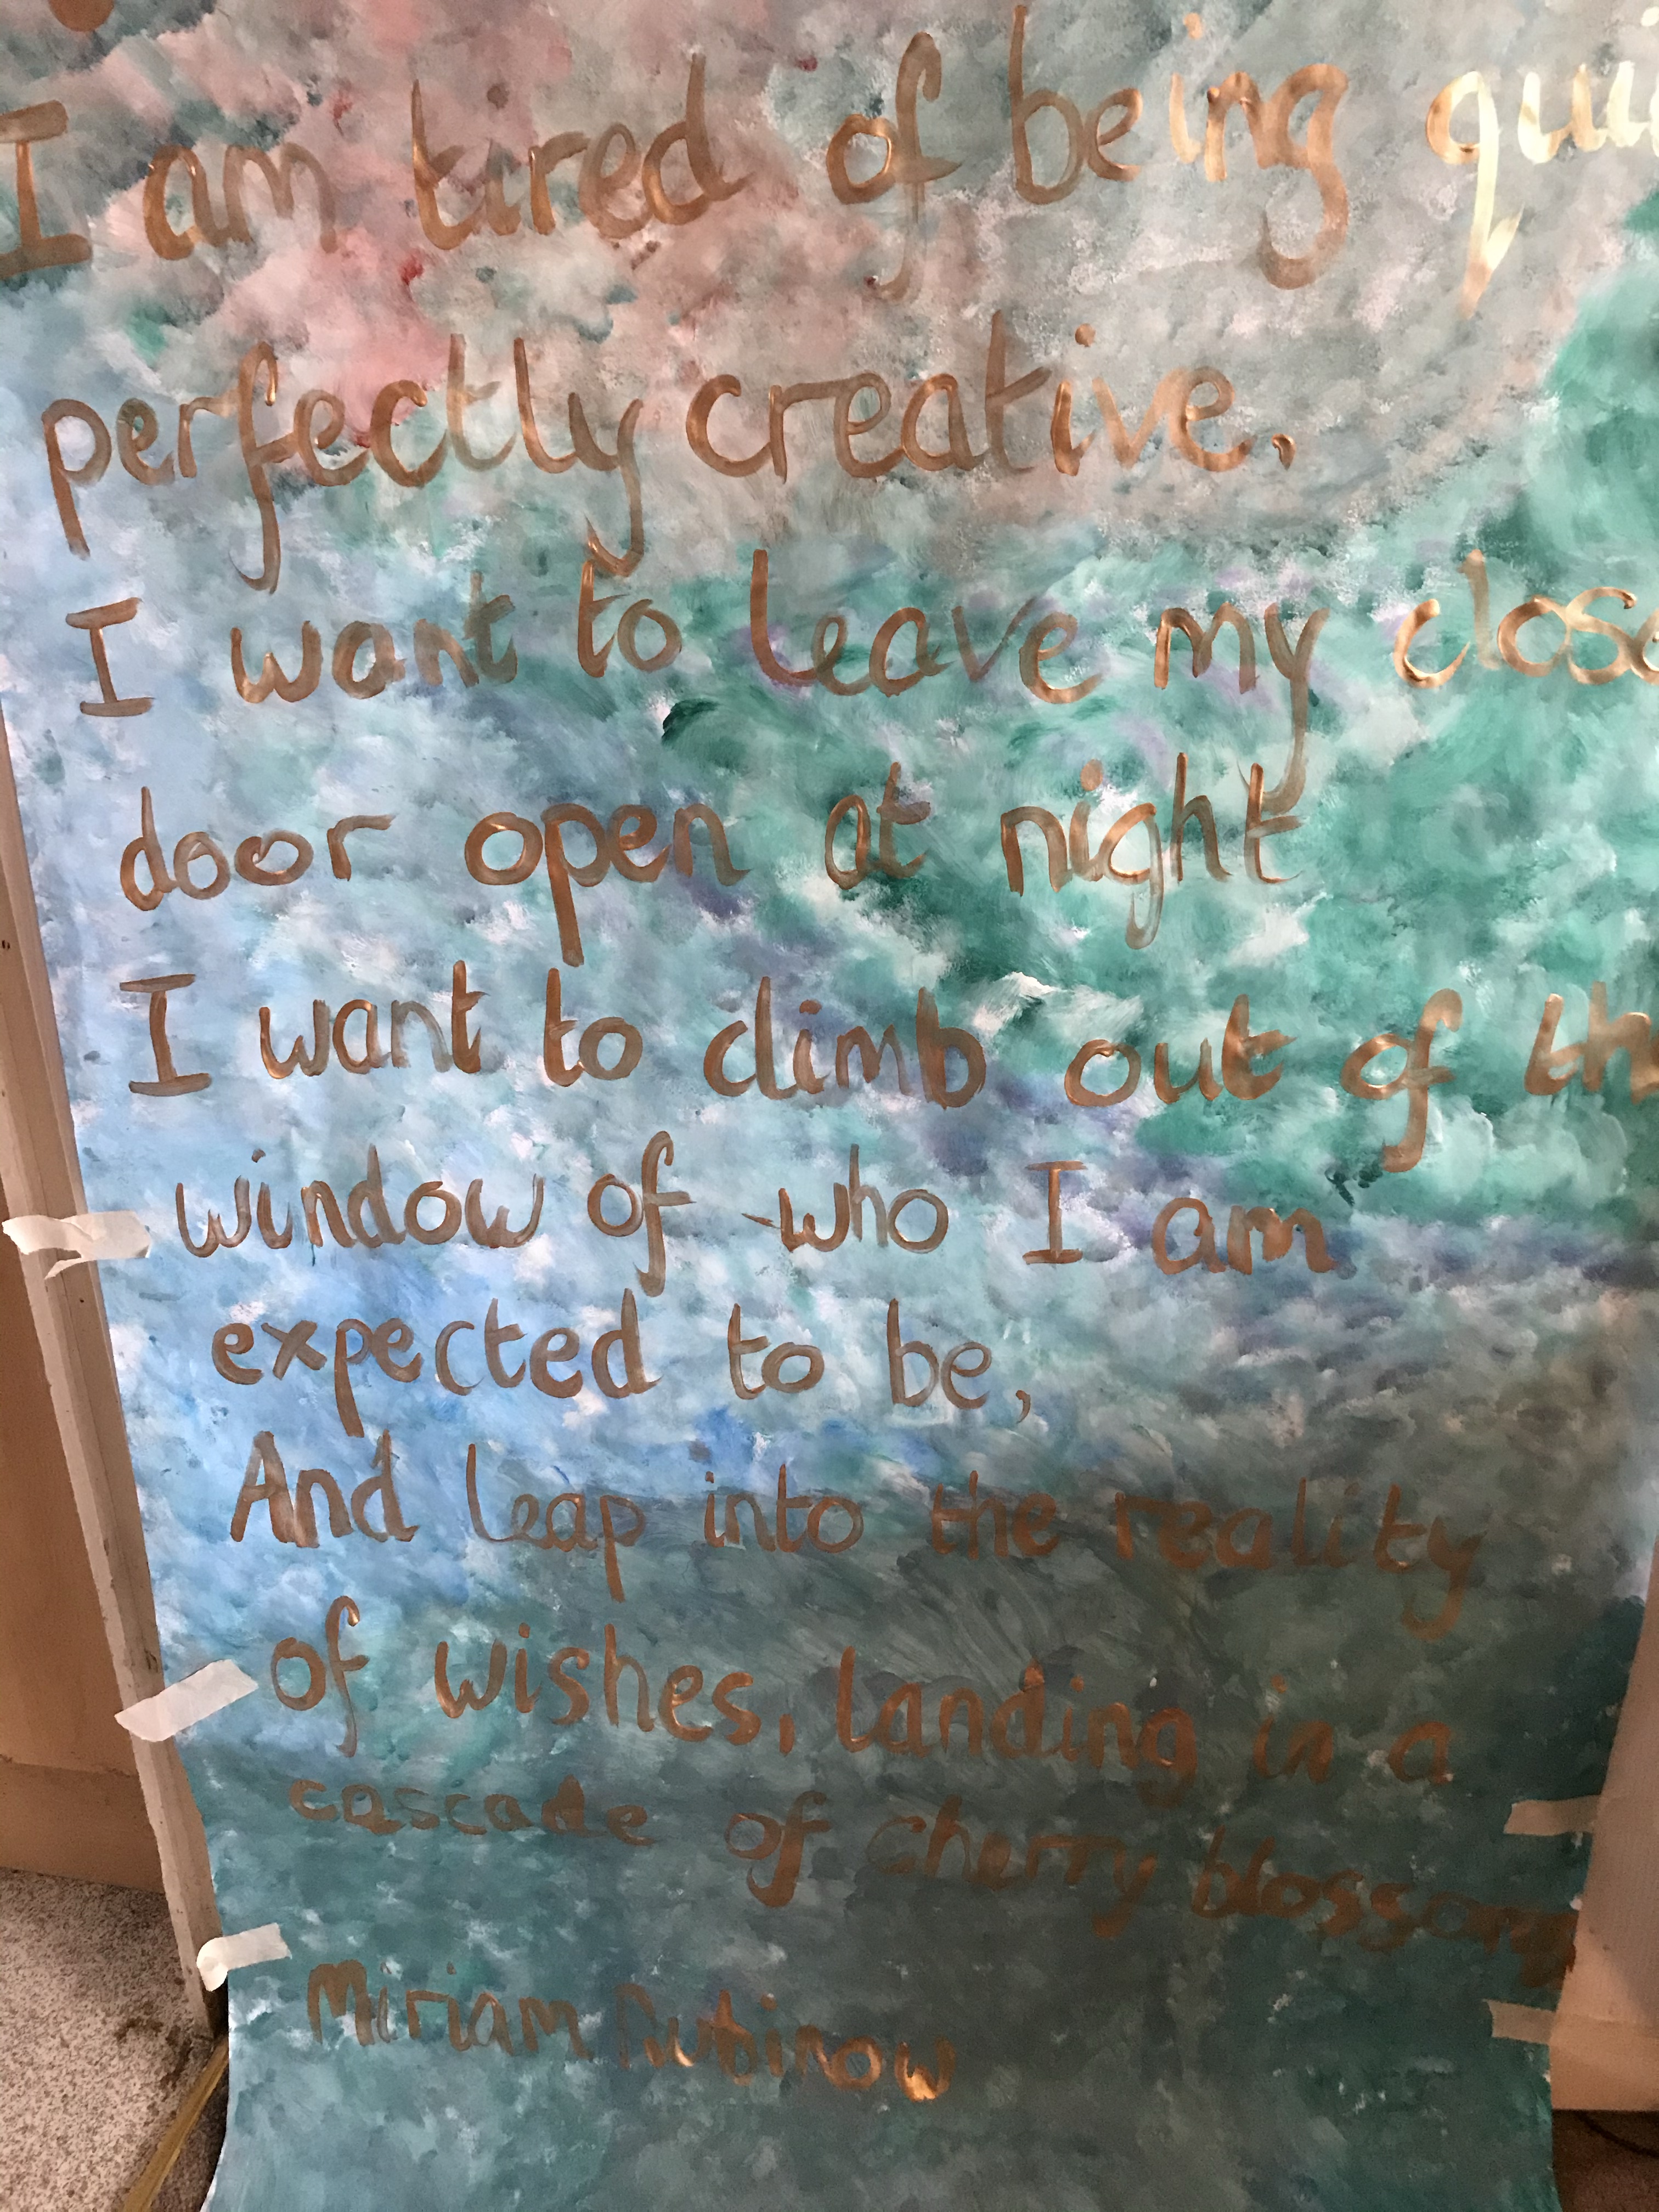 I am tired of being qui
perfectly creative.
I want to leave my close
door open at night
I want to climb out of th
window of who I am
expected to be,
And leap into the reality
of wishes, landing in a
cascade of cherry blossoms
Miriam Rubinow